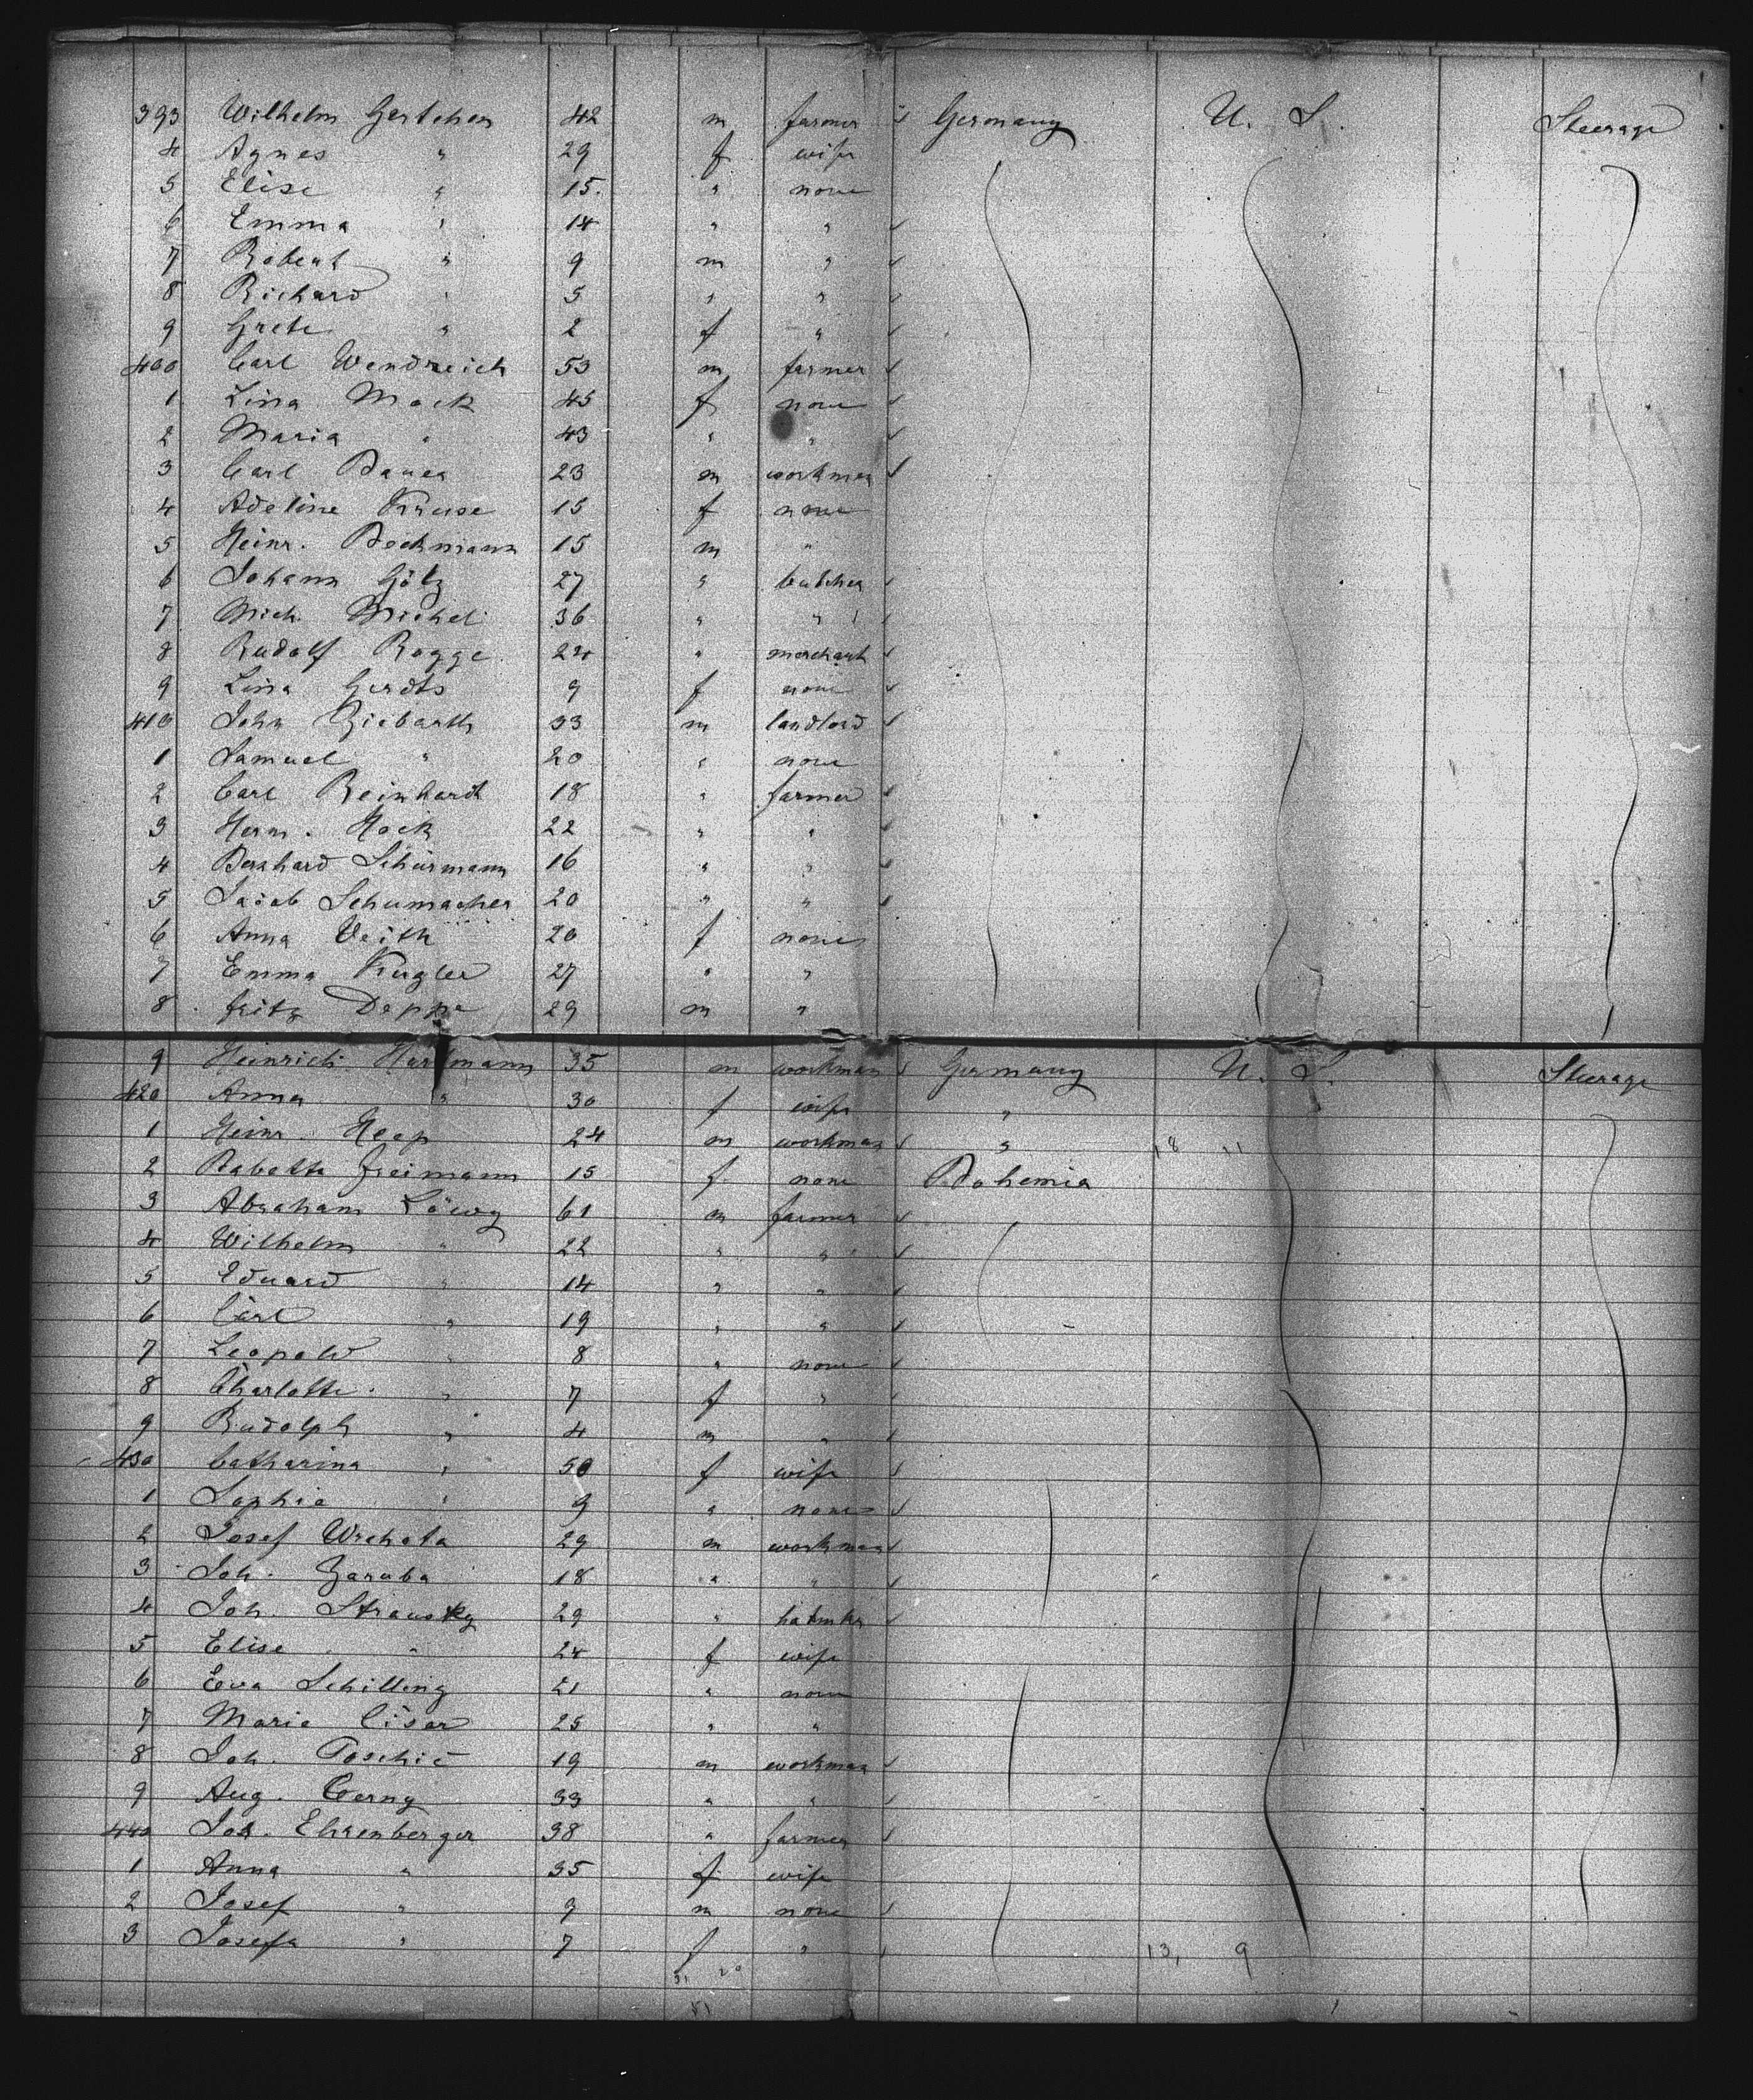 393 Wilhelm Gertchen 42 m farmer Germany U. S. Steerage
4 Agnes " 29 f wife
5 Elise " 15. " none
6 Emma " 14 " "
7 Robert " 9 m "
8 Richard " 5 " "
9 Grete " 2 f "
400 Carl Wendreich 53 m farmer
1 Lina Mack 45 f none
2 Maria " 43 " "
3 Carl Bauer 23 m workman
4 Adeline Kruse 15 f none
5 Heinr. Bechmann 15 m "
6 Johann Götz 27 " butcher
7 Mich. Michel 36 " "
8 Rudolf Rogge 24 " merchant
9 Lina Gerdts 9 f none
410 John Ziebarth 33 m landlord
1 Samuel " 20 " none
2 Carl Reinhardt 18 " farmer
3 Herm. Hock 22 " "
4 Bernhard Schürmann 16 " "
5 Jacob Schumacher 20 " "
6 Anna Veith 20 f none
7 Emma Kugler 27 " "
8 Fritz Deppe 29 m "
9 Heinrich Hartmann 35 m workman Germany U. S. Steerage
420 Anna " 30 f wife "
1 Heinr. Heep 24 m workman " 18 11
2 Babette Freimann 15 f none Bohemia
3 Abraham Löwy 61 m farmer
4 Wilhelm " 22 " "
5 Eduard " 14 " "
6 Carl " 19 " "
7 Leopold " 8 " none
8 Charlotte " 7 f "
9 Rudolph " 4 m "
430 Catharina " 50 f wife
1 Sophie " 9 " none
2 Josef Wichota 29 m workman
3 Joh. Zaruba 18 " "
4 Joh. Stransky 29 " hatmkr
5 Elise " 24 f wife
6 Eva Schilling 21 " none
7 Marie Cisar 25 " "
8 Joh. Toschic 19 m workman
9 Aug. Cerny 33 " "
440 Jos. Ehrenberger 38 " farmer
1 Anna " 35 f wife
2 Josef " 9 m none
3 Josefa " 7 f " 13, 9
31 20
51